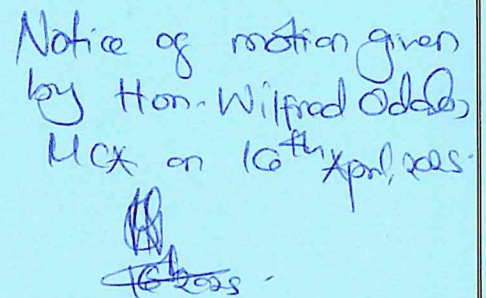 Notice of motion given
by Hon. Wilfred Odalo,
MCA on 16th April, 2025.